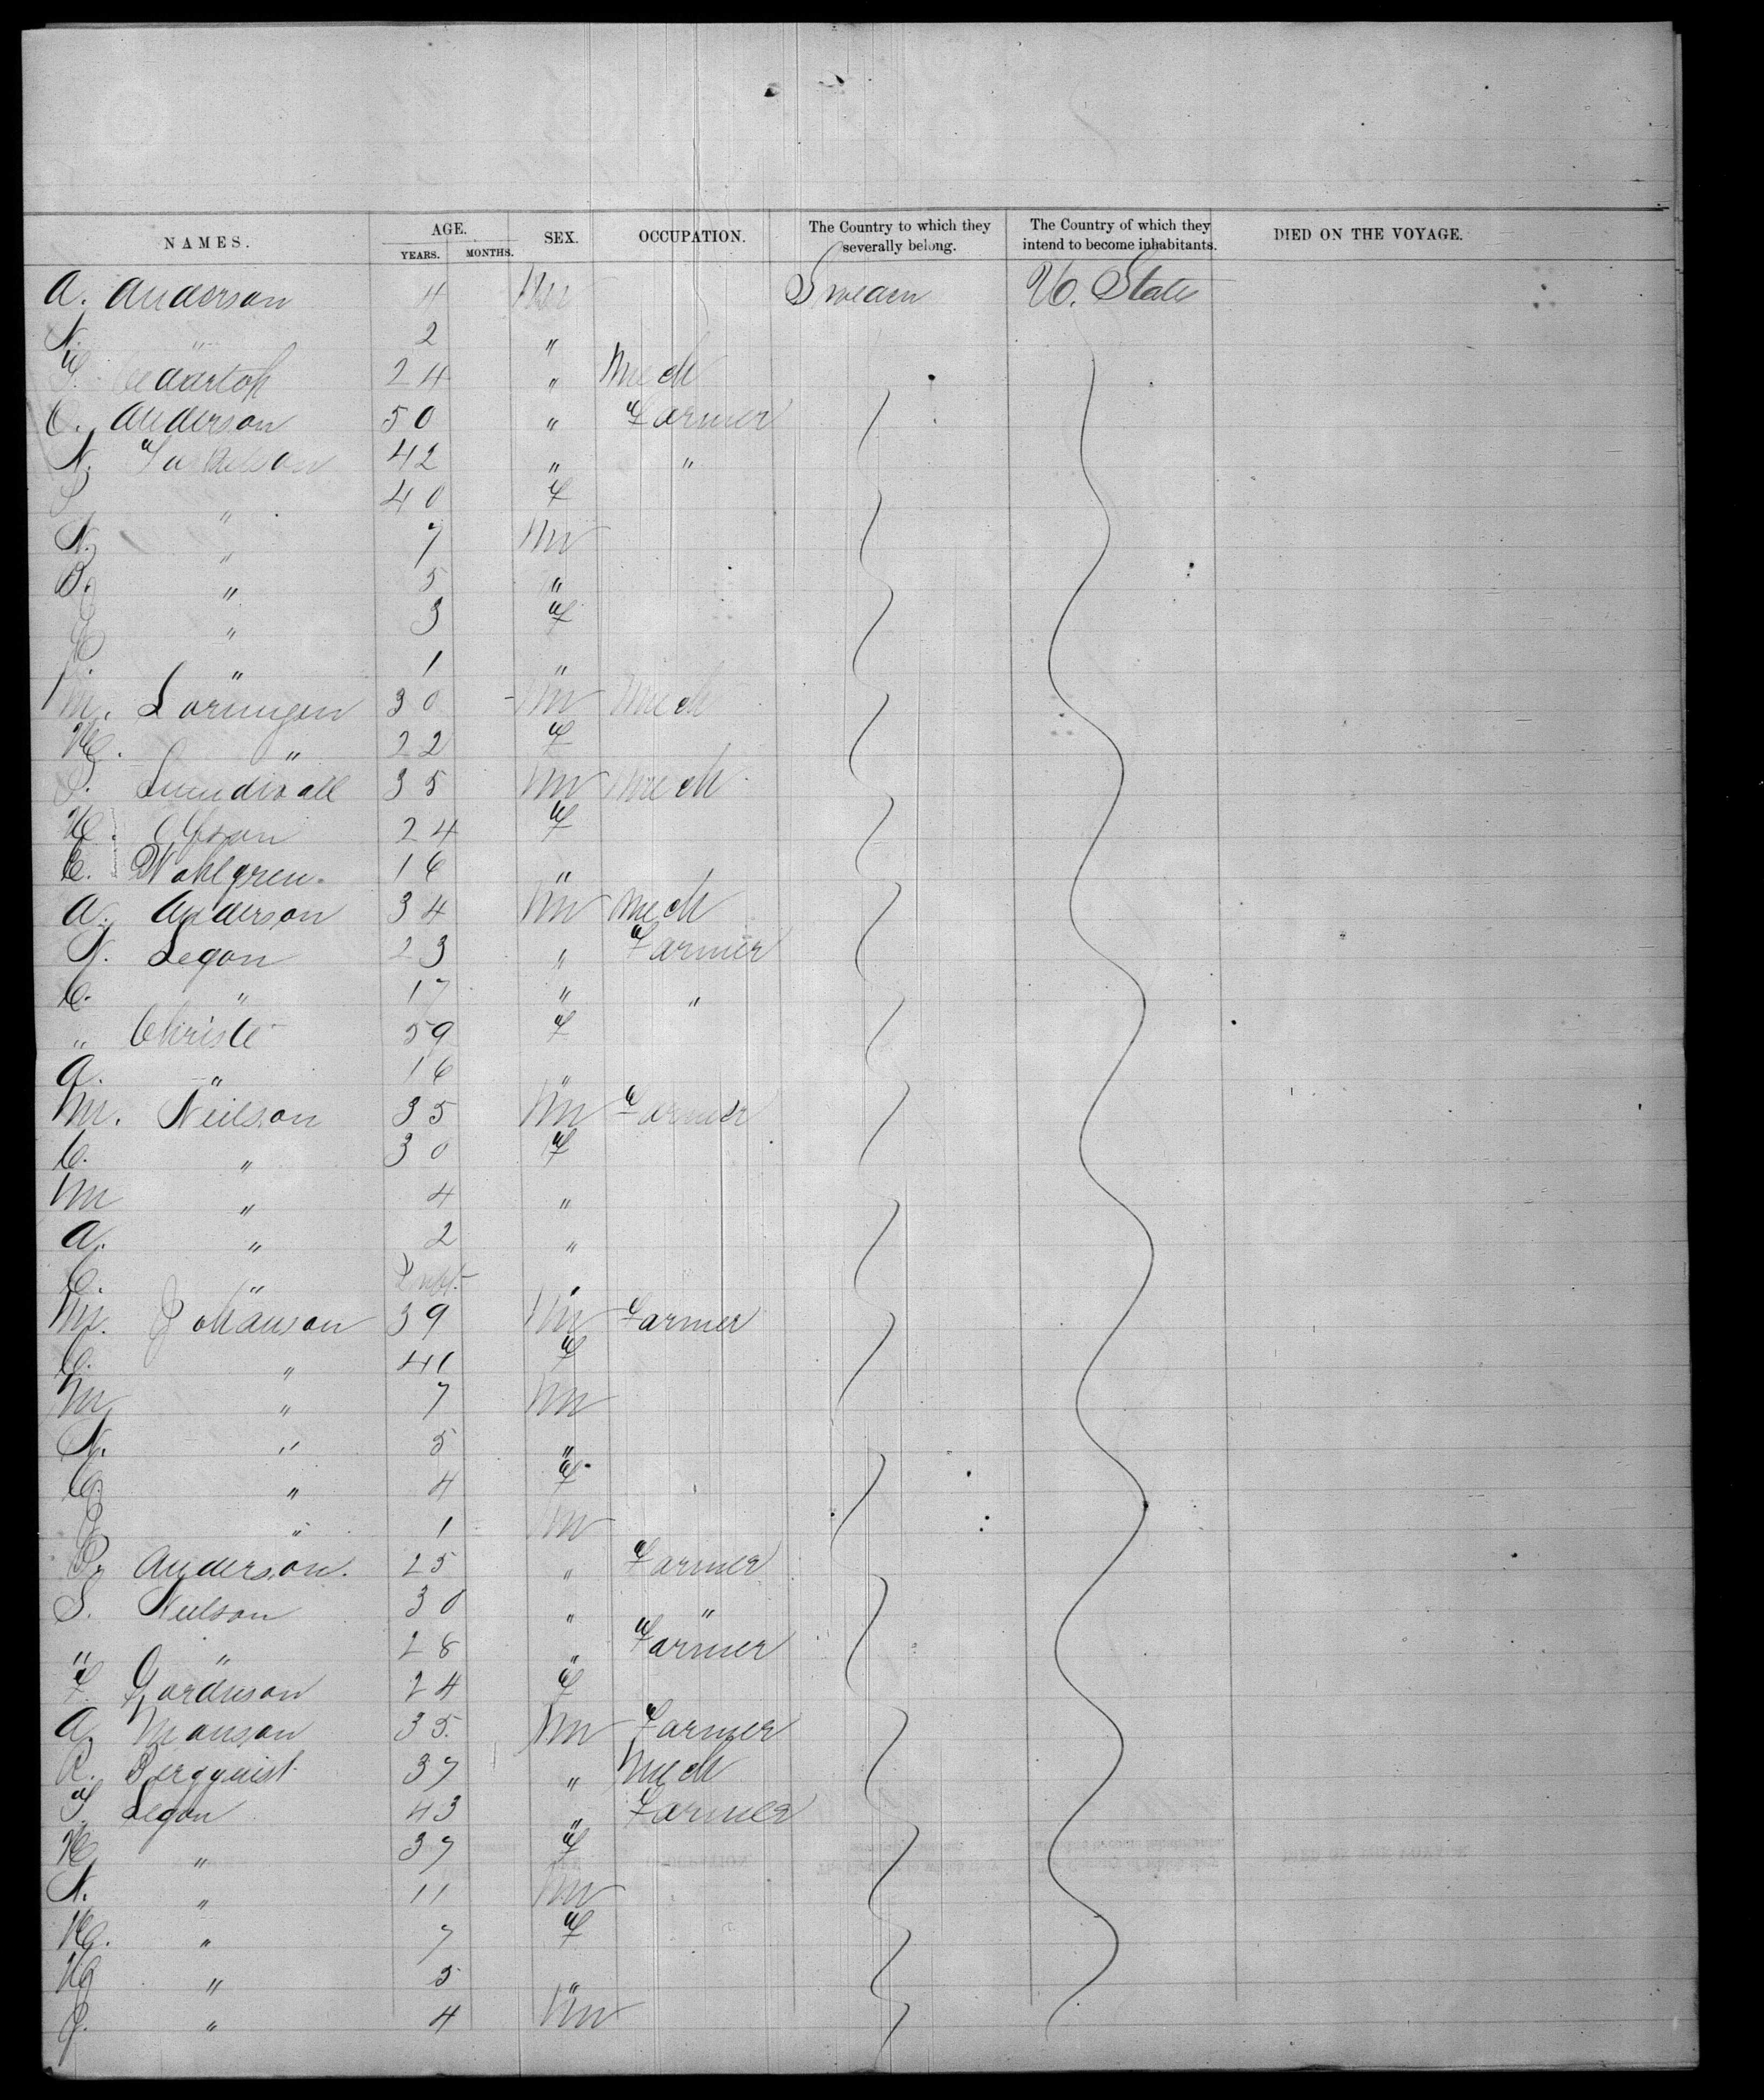 NAMES. AGE. YEARS. MONTHS. SEX. OCCUPATION. The Country to which they severally belong. The Country of which they intend to become inhabitants. DIED ON THE VOYAGE.
A. Anderson 4 M Sweden U. State
N. " 2 "
24 " Mech
C. Anderson 50 " Farmer
N. 42 " "
S " 40 F
N. " 7 M
B. " 5 "
C " 3 F
" 1 "
M. Loringen 30 M Mech
H. " 22 F
S. Lundwall 35 M Mech
H. Olfson 24 F
C. Wahlgren 16 "
A. Anderson 34 M Mech
N. Legon 23 " Farmer
C. " 17 " "
" Christe 59 F
A. " 16 "
M. Neilson 35 M Farmer
C. " 30 F
M " 4 "
A. " 2 "
C. " Inft "
M. Johanson 39 M Farmer
C. " 41 F
M " 7 M
N. " 5 "
C. " 4 F
J " 1 M
P. Anderson. 25 " Farmer
S. Neilson 30 " "
" " 28 " Farmer
F. Gordnson 24 F
A. Monson 35. M Farmer
R. Bergquist 37 " Mech
T. Legon 43 " Farmer
H " 37 F
N. " 11 M
H. " 7 F
H " 5 "
J. " 4 M